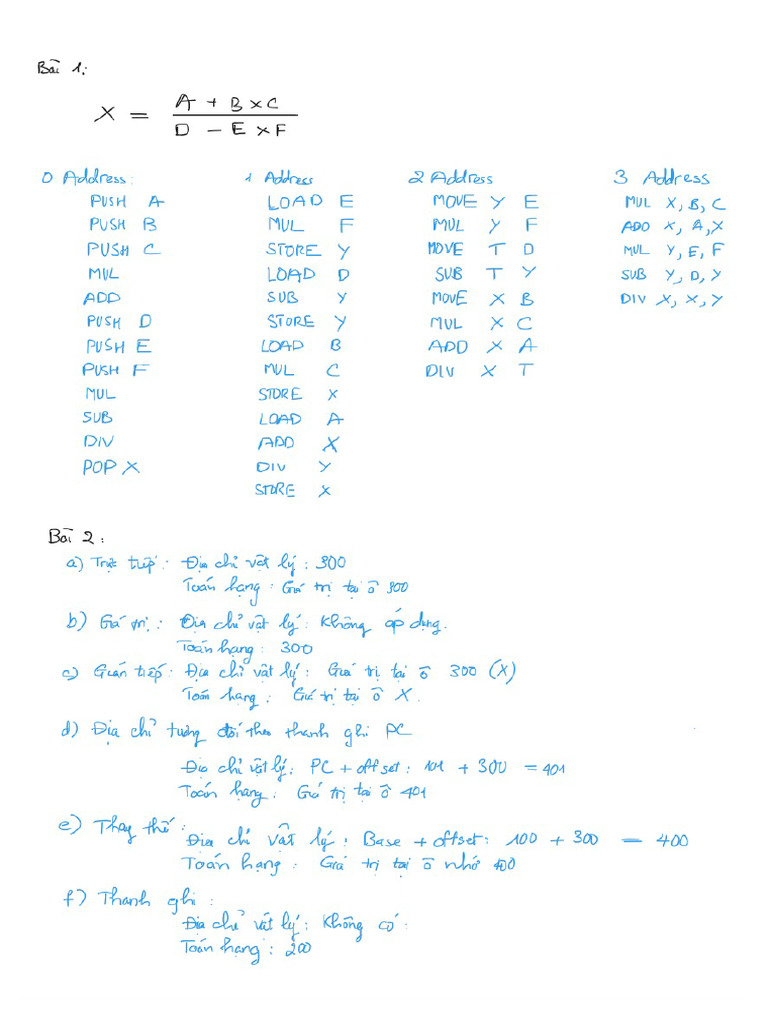 Bài 1:
X = A + B x C / D - E x F
0 Address:
PUSH A
PUSH B
PUSH C
MUL
ADD
PUSH D
PUSH E
PUSH F
MUL
SUB
DIV
POP X
1 Address
LOAD E
MUL F
STORE Y
LOAD D
SUB Y
STORE Y
LOAD B
MUL C
STORE X
LOAD A
ADD X
DIV Y
STORE X
2 Address
MOVE Y E
MUL Y F
MOVE T D
SUB T Y
MOVE X B
MUL X C
ADD X A
DIV X T
3 Address
MUL X, B, C
ADD X, A, X
MUL Y, E, F
SUB Y, D, Y
DIV X, X, Y
Bài 2:
a) Trực tiếp: Địa chỉ vật lý: 300
Toán hạng: Giá trị tại ô 300
b) Giá trị: Địa chỉ vật lý: Không áp dụng.
Toán hạng: 300
c) Gián tiếp: Địa chỉ vật lý: Giá trị tại ô 300 (X)
Toán hạng: Giá trị tại ô X.
d) Địa chỉ tương đối theo thanh ghi PC
Địa chỉ vật lý: PC + offset: 101 + 300 = 401
Toán hạng: Giá trị tại ô 401
e) Thay thế:
Địa chỉ vật lý: Base + offset: 100 + 300 = 400
Toán hạng: Giá trị tại ô nhớ 400
f) Thanh ghi:
Địa chỉ vật lý: Không có:
Toán hạng: 200